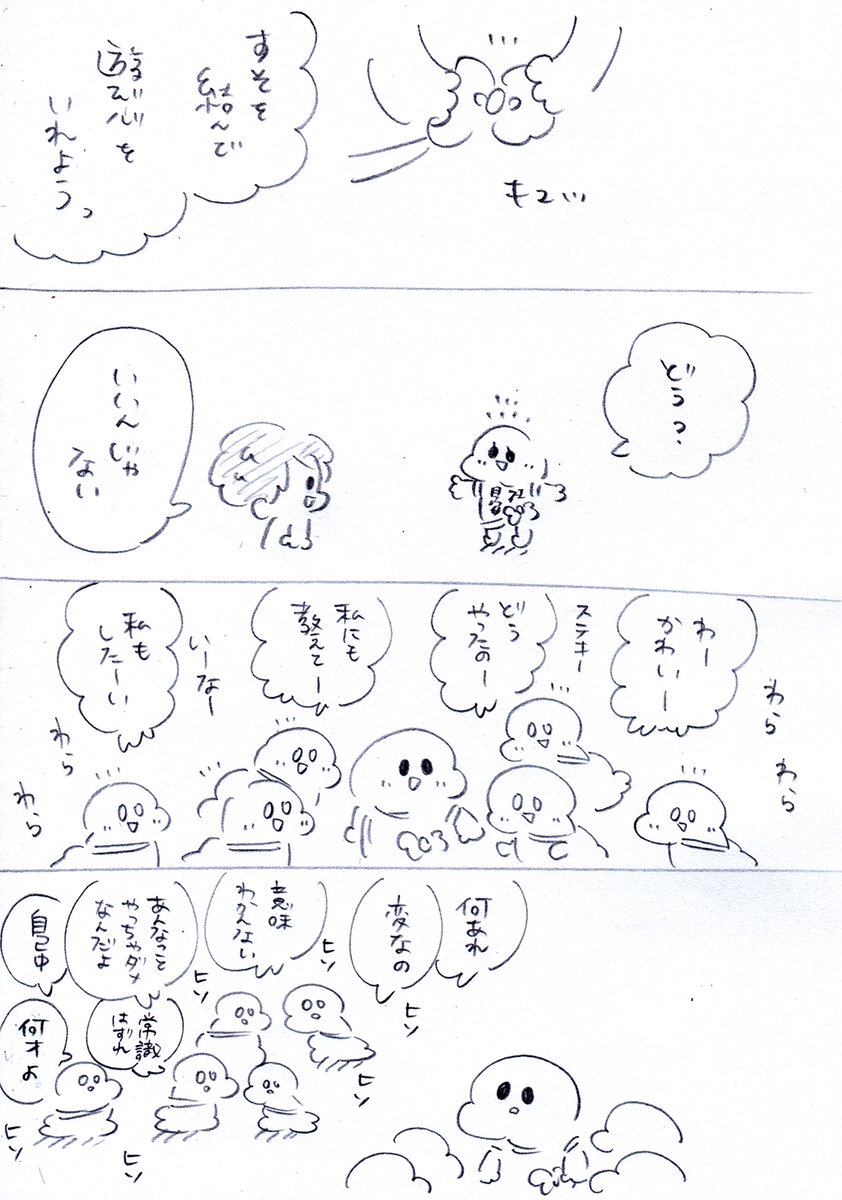 すそを
結んで
遊び心を
いれようっ
キュ…
どう？
いいんじゃ
ない
わー
かわいー
ステキー
どう
やったのー
私にも
教えてー
いーなー
私も
したーい
わら
わら
わら
わら
何あれ
変なの
意味
わかんない
あんなこと
やっちゃダメ
なんだよ
自己中
常識
はずれ
何才よ
ヒソ
ヒソ
ヒソ
ヒソ
ヒソ
ヒソ